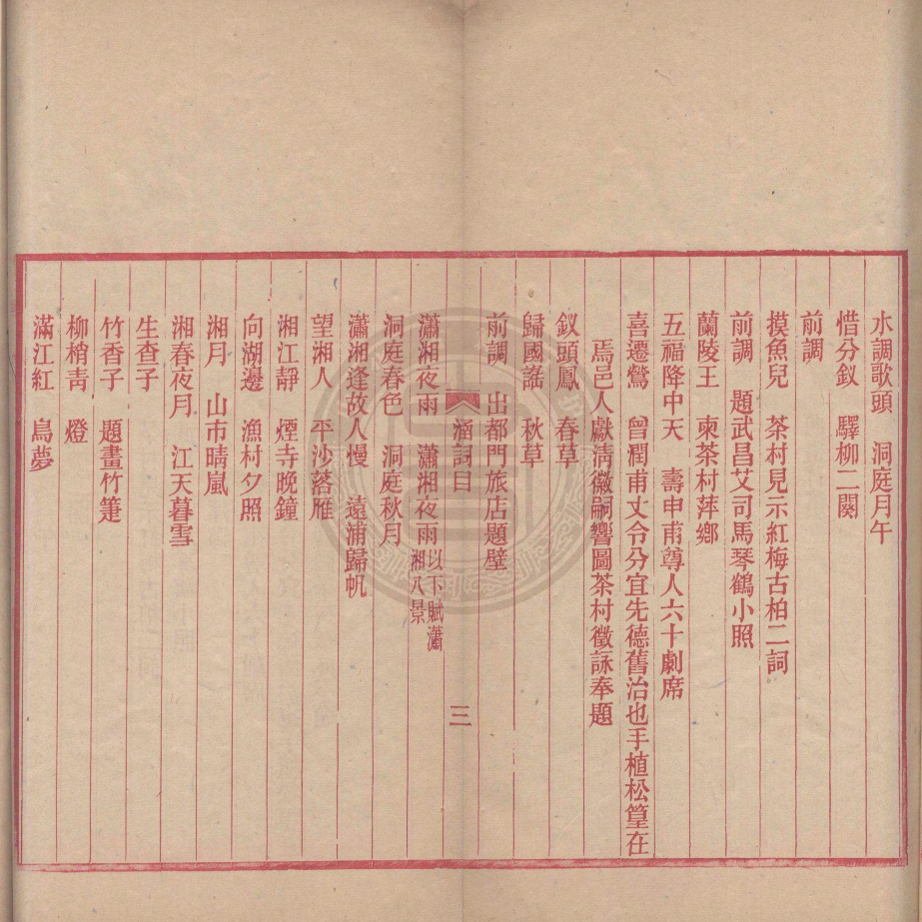 水調歌頭　洞庭月午
惜分釵　驛柳二闋
前調
摸魚兒　茶村見示紅梅古柏二詞
前調　題武昌艾司馬琴鶴小照
蘭陵王　柬茶村萍鄉
五福降中天　壽申甫尊人六十劇席
喜遷鶯　曾潤甫丈令分宜先德舊治也手植松篁在
焉邑人獻清徽嗣響圖茶村徵詠奉題
釵頭鳳　春草
歸國謠　秋草
前調　出都門旅店題壁
涵詞目　三
瀟湘夜雨　瀟湘夜雨以下賦瀟湘八景
洞庭春色　洞庭秋月
瀟湘逢故人慢　遠浦歸帆
望湘人　平沙落雁
湘江靜　煙寺晚鐘
向湖邊　漁村夕照
湘月　山市晴嵐
湘春夜月　江天暮雪
生查子
竹香子　題畫竹箑
柳梢青　燈
滿江紅　鳥夢